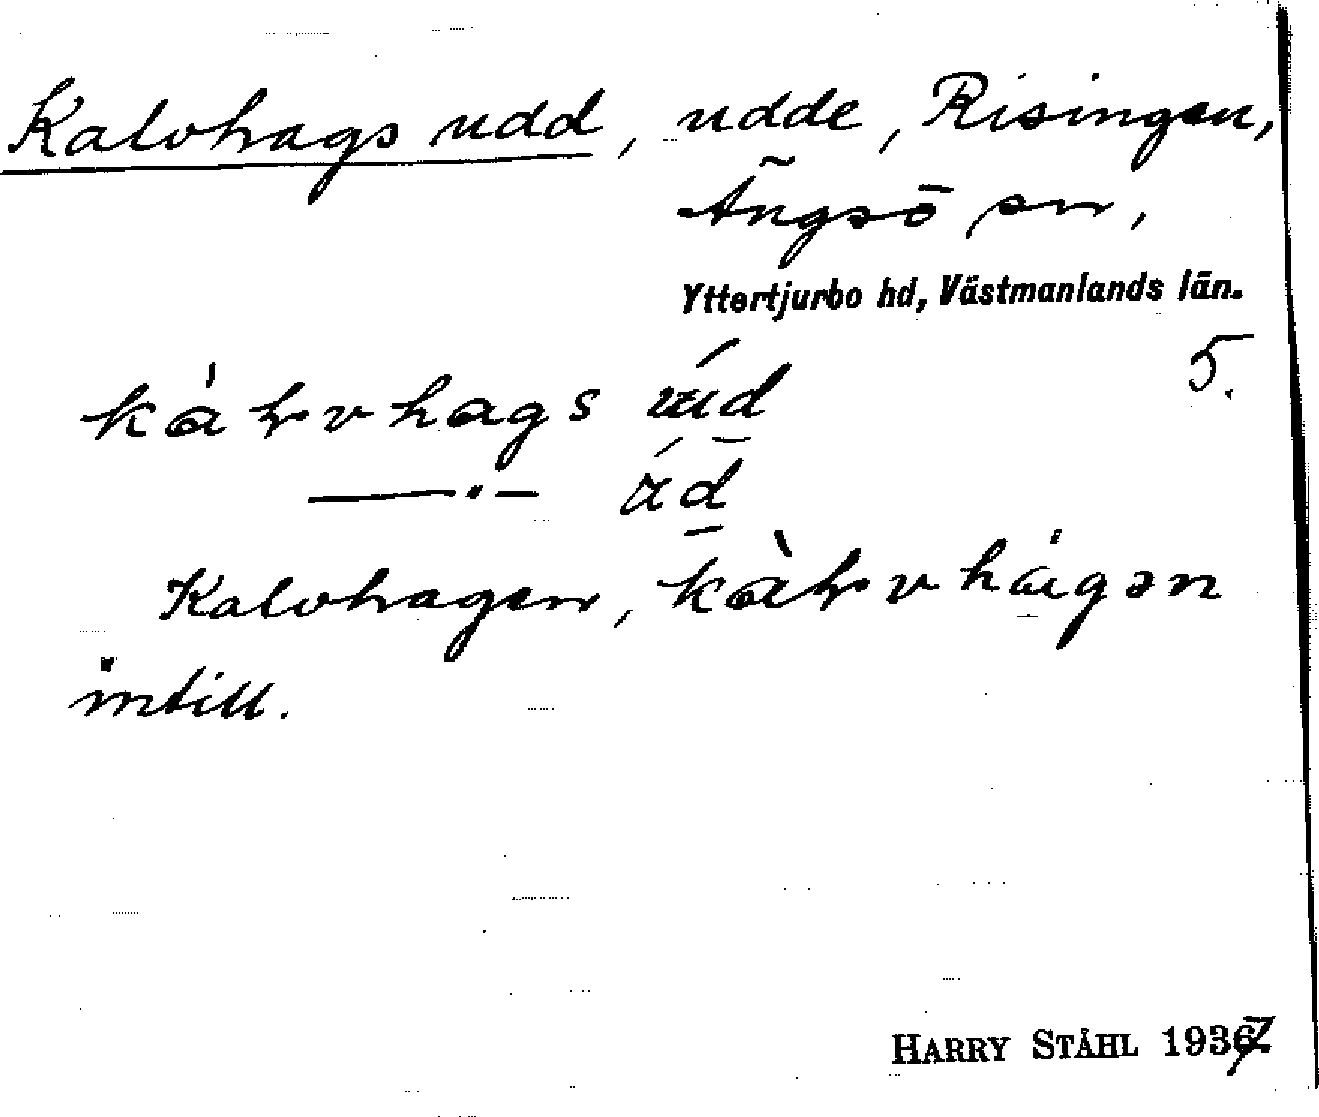 Kalvhags udd, udde, Risingen,
Ängsö sn,
Yttertjurbo hd, Västmanlands län.
5.
Kalvhagen,
intill.
HARRY STÅHL 1937